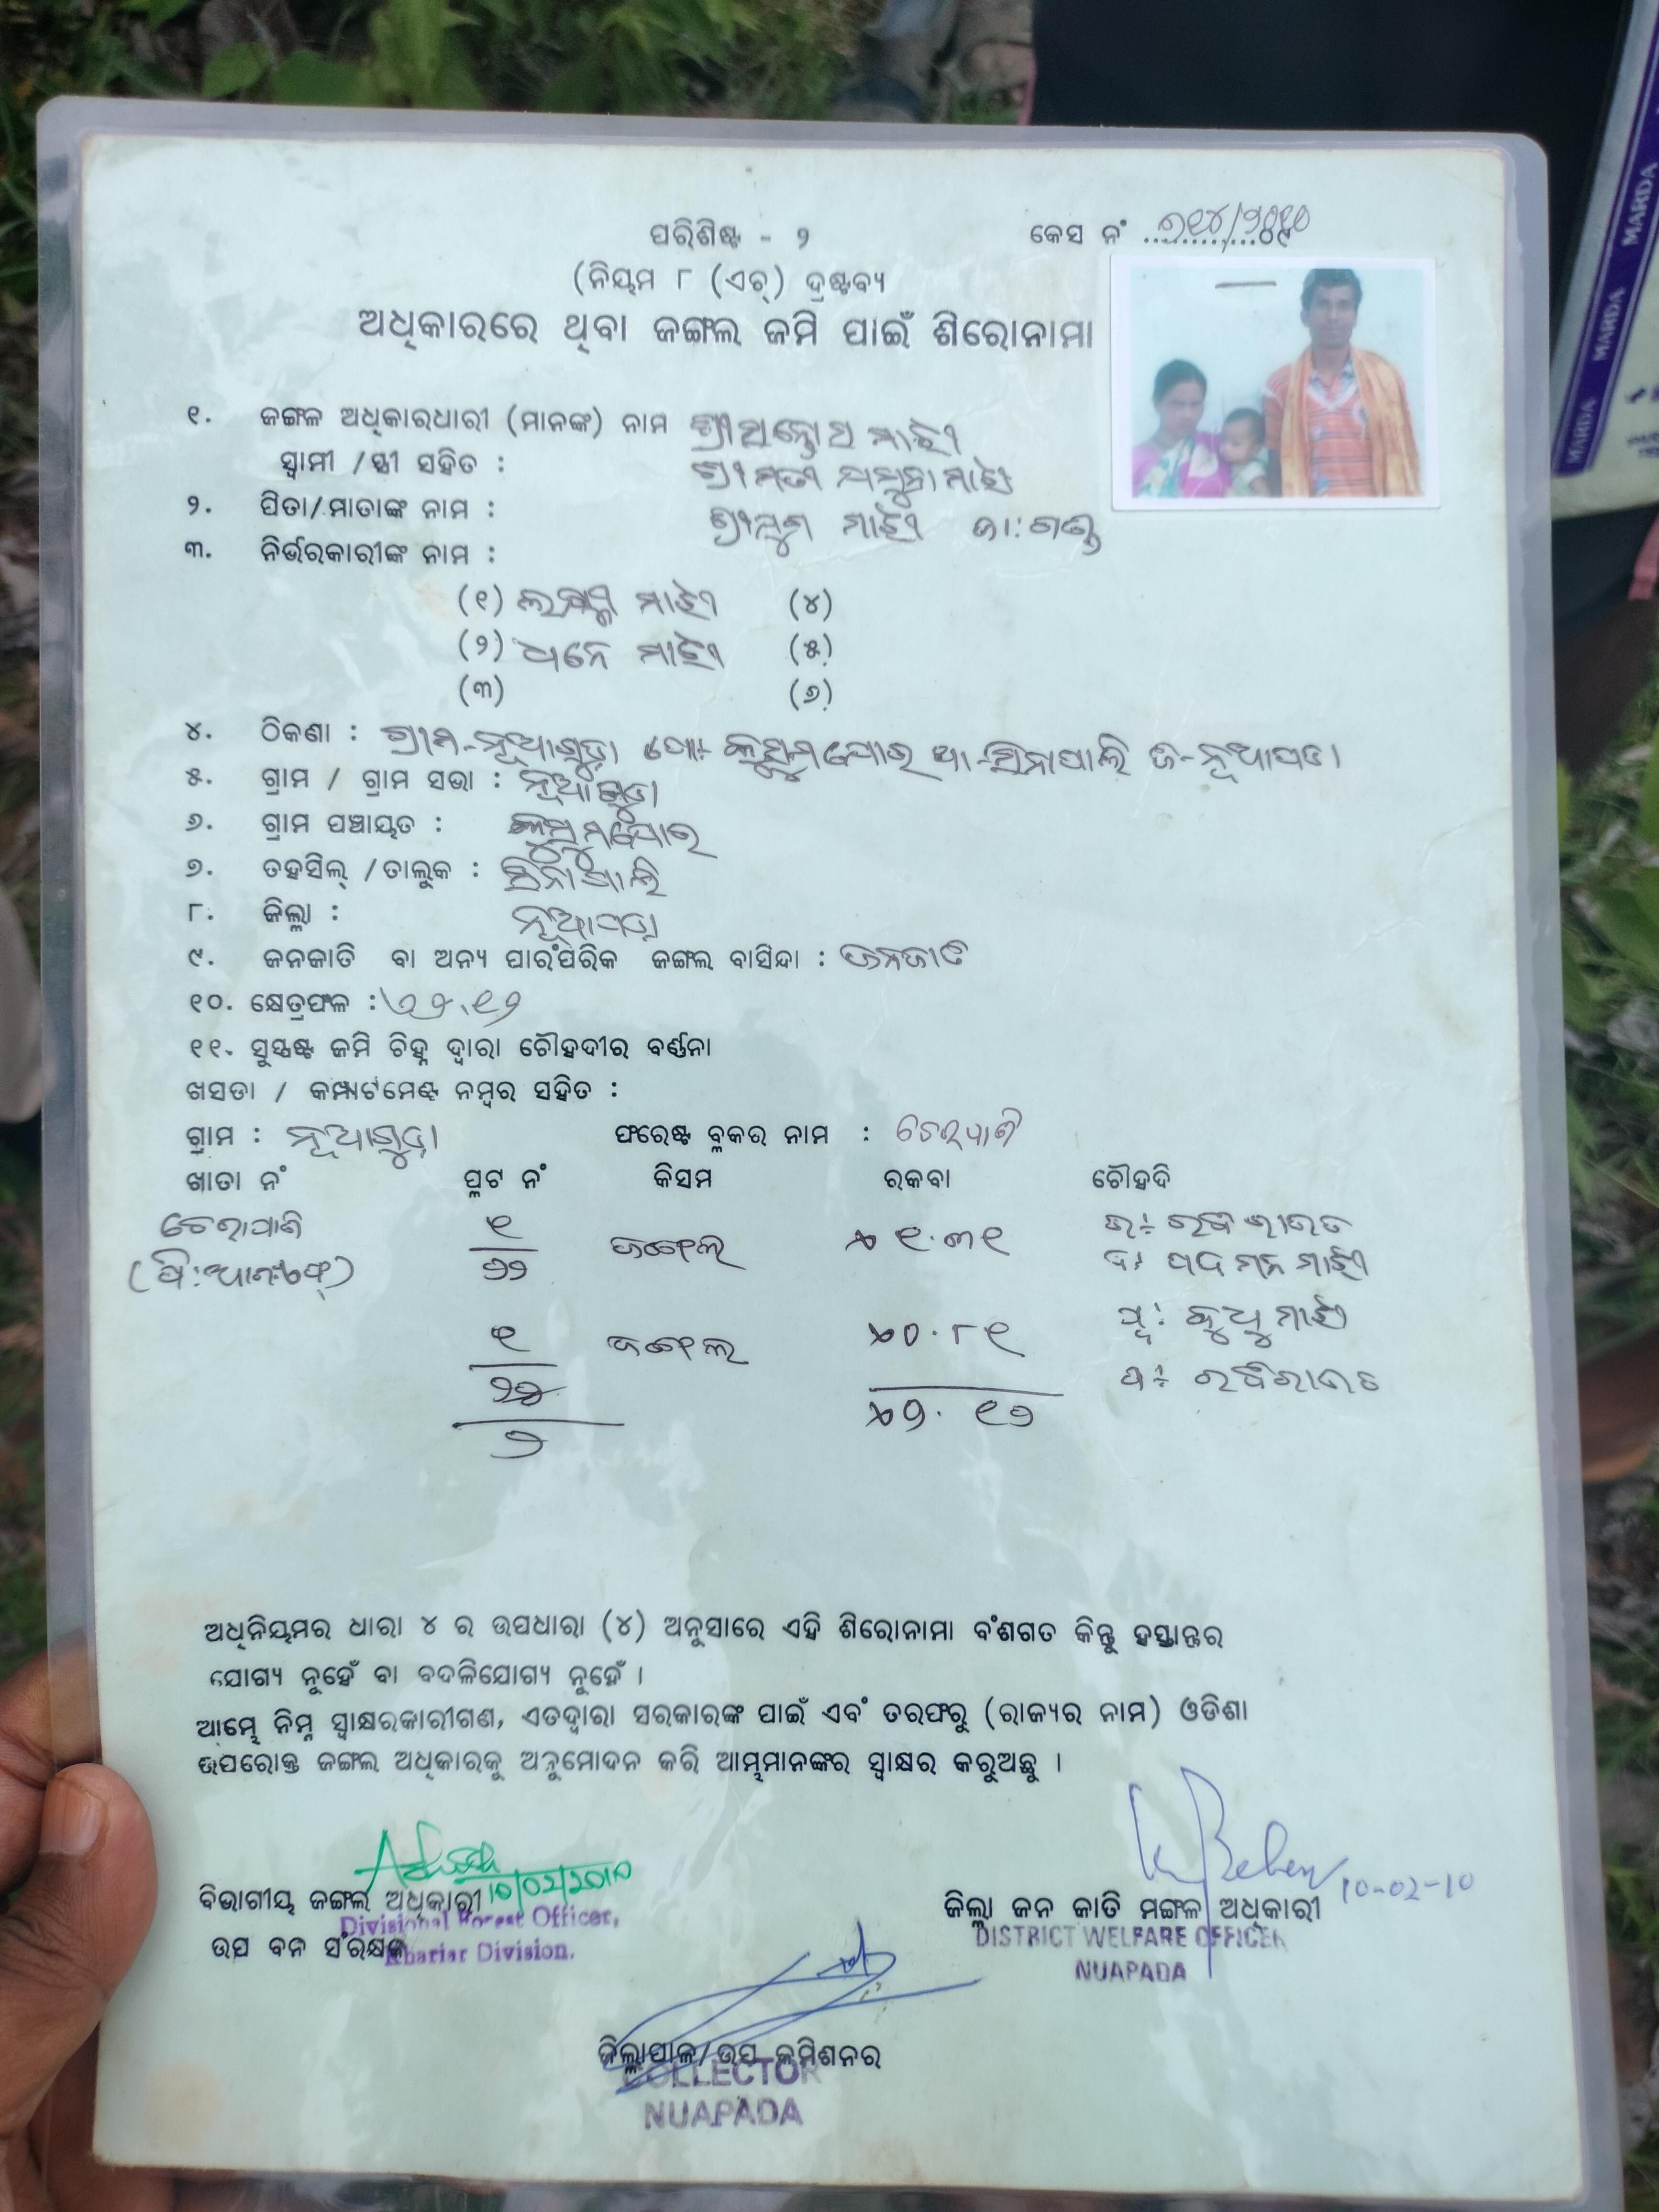 ପରିଶିଷ୍ଟ - ୨
କେସ ନଂ ୨୧୪/୨୦୧୦
(ନିୟମ ୮ (ଏଚ୍) ଦ୍ରଷ୍ଟବ୍ୟ
ଅଧିକାରରେ ଥିବା ଜଙ୍ଗଲ ଜମି ପାଇଁ ଶିରୋନାମା
୧. ଜଙ୍ଗଳ ଅଧିକାରଧାରୀ (ମାନଙ୍କ) ନାମ ଶ୍ରୀ ସନ୍ତୋଷ ମାଝୀ
ସ୍ଵାମୀ /ସ୍ତ୍ରୀ ସହିତ : ଶ୍ରୀମତୀ ଯମୁନା ମାଝୀ
୨. ପିତା/ମାତାଙ୍କ ନାମ : ଶ୍ରୀ ମାଝୀ ଜା: ଗଣ୍ଡ
୩. ନିର୍ଭରକାରୀଙ୍କ ନାମ :
(୧) ଲକ୍ଷ୍ମୀ ମାଝୀ (୪)
(୨) ଧନେ ମାଝୀ (୫)
(୩) (୬)
୪. ଠିକଣା : ଗ୍ରାମ-ନୂଆଗୁଡ଼ା ପୋ: ସିନାପାଲି ଜି-ନୂଆପଡା
୫. ଗ୍ରାମ / ଗ୍ରାମ ସଭା : ନୂଆଗୁଡା
୬. ଗ୍ରାମ ପଞ୍ଚାୟତ :
୭. ତହସିଲ୍ /ତାଲୁକ : ସିନାପାଲି
୮. ଜିଲ୍ଲା : ନୂଆପଡ଼ା
୯. ଜନଜାତି ବା ଅନ୍ୟ ପାରଂପରିକ ଜଙ୍ଗଲ ବାସିନ୍ଦା : ଜନଜାତି
୧୦. କ୍ଷେତ୍ରଫଳ : ୨.୧୨
୧୧. ସୁସ୍ପଷ୍ଟ ଜମି ଚିହ୍ନ ଦ୍ଵାରା ଚୌହଦୀର ବର୍ଣ୍ଣନା
ଖସଡା / କମ୍ପାର୍ଟମେଣ୍ଟ ନମ୍ବର ସହିତ :
ଗ୍ରାମ : ନୂଆଗୁଡ଼ା ଫରେଷ୍ଟ ବ୍ଲକର ନାମ :
ଖାତା ନଂ ପ୍ଲଟ ନଂ କିସମ ରକବା ଚୌହଦି
୧/୨୨ ଜଙ୍ଗଲ ୧.୩୧
ମାଝୀ
ଜଙ୍ଗଲ ୦.୮୧ ମାଝୀ
୨ ୨.୧୨
ଅଧିନିୟମର ଧାରା ୪ ର ଉପଧାରା (୪) ଅନୁସାରେ ଏହି ଶିରୋନାମା ବଂଶଗତ କିନ୍ତୁ ହସ୍ତାନ୍ତର
ଯୋଗ୍ୟ ନୁହେଁ ବା ବଦଳିଯୋଗ୍ୟ ନୁହେଁ ।
ଆମ୍ଭେ ନିମ୍ନ ସ୍ଵାକ୍ଷରକାରୀଗଣ, ଏତଦ୍ଵାରା ସରକାରଙ୍କ ପାଇଁ ଏବଂ ତରଫରୁ (ରାଜ୍ୟର ନାମ) ଓଡିଶା
ଉପରୋକ୍ତ ଜଙ୍ଗଲ ଅଧିକାରକୁ ଅନୁମୋଦନ କରି ଆମ୍ଭମାନଙ୍କର ସ୍ଵାକ୍ଷର କରୁଅଛୁ ।
10/02/2010
10-02-10
ବିଭାଗୀୟ ଜଙ୍ଗଲ ଅଧିକାରୀ
ଜିଲ୍ଲା ଜନ ଜାତି ମଙ୍ଗଳ ଅଧିକାରୀ
Divisional Forest Officer,
DISTRICT WELFARE OFFICER
ଉପ ବନ ସଂରକ୍ଷକ
Khariar Division.
NUAPADA
ଜିଲ୍ଲାପାଳ/ଉପ କମିଶନର
COLLECTOR
NUAPADA
MARDA
MARDA
MARDA
MARDA